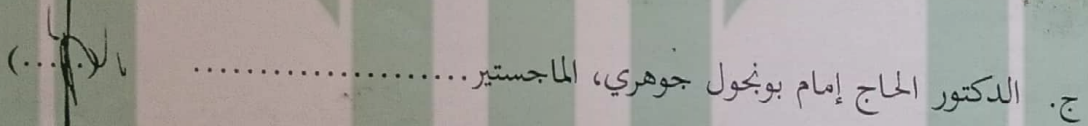 ج. الدكتور الحاج إمام بونجول جوهري، الماجستير..................... (.....)